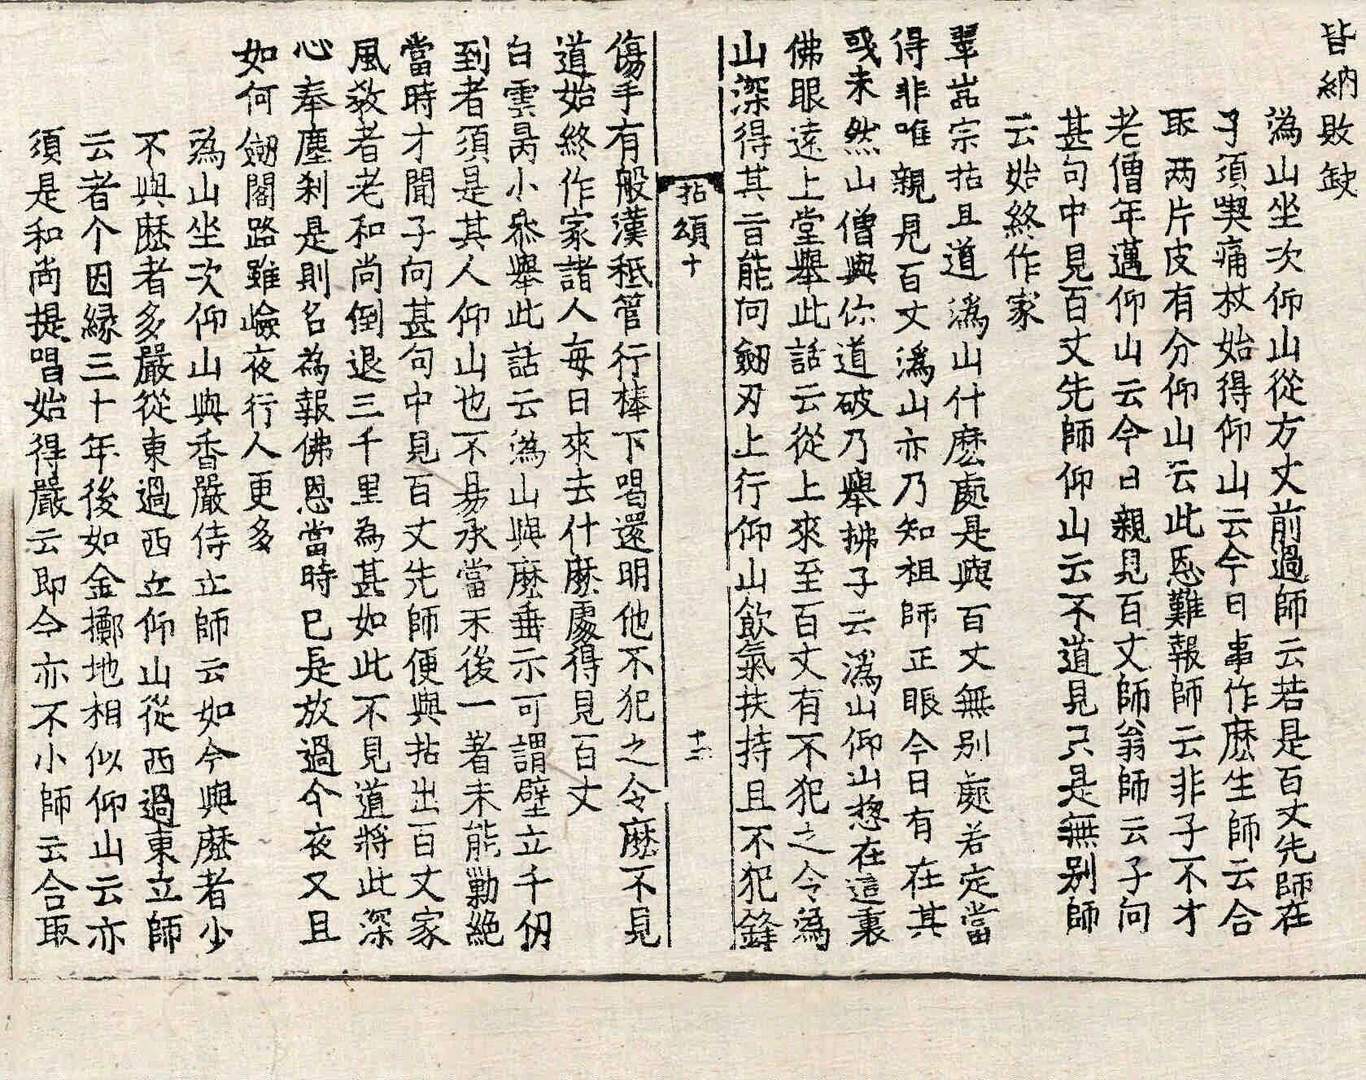 皆納敗缺
溈山坐次仰山從方丈前過師云若是百丈先師在
子須喫痛杖始得仰山云今日事作麽生師云合
取两片皮有分仰山云此恩難報師云非子不才
老僧年邁仰山云今日親見百丈師翁師云子向
甚句中見百丈先師仰山云不道見只是無别師
云始終作家
翠嵓宗拈且道溈山什麽處是與百丈無别處若定當
得非唯親見百丈溈山亦乃知祖師正眼今日有在其
或未然山僧與你道破乃舉拂子云溈山仰山惣在這裏
佛眼遠上堂舉此話云從上來至百丈有不犯之令溈
山深得其旨能向劒刃上行仰山飮氣扶持且不犯鋒
拈頌十
十二
傷手有般漢秪管行棒下喝還明他不犯之令麽不見
道始終作家諸人每日來去什麽處得見百丈
白雲昺小叅舉此話云溈山與麽垂示可謂壁立千仞
到者須是其人仰山也不易承當末後一著未能勦絶
當時才聞子向甚句中見百丈先師便與拈出百丈家
風敎者老和尚倒退三千里為甚如此不見道將此深
心奉塵刹是則名為報佛恩當時已是放過今夜又且
如何劒閣路雖嶮夜行人更多
溈山坐次仰山與香嚴侍立師云如今與麽者少
不與麽者多嚴從東過西立仰山從西過東立師
云者个因緣三十年後如金擲地相似仰山云亦
須是和尚提唱始得嚴云即今亦不小師云合取